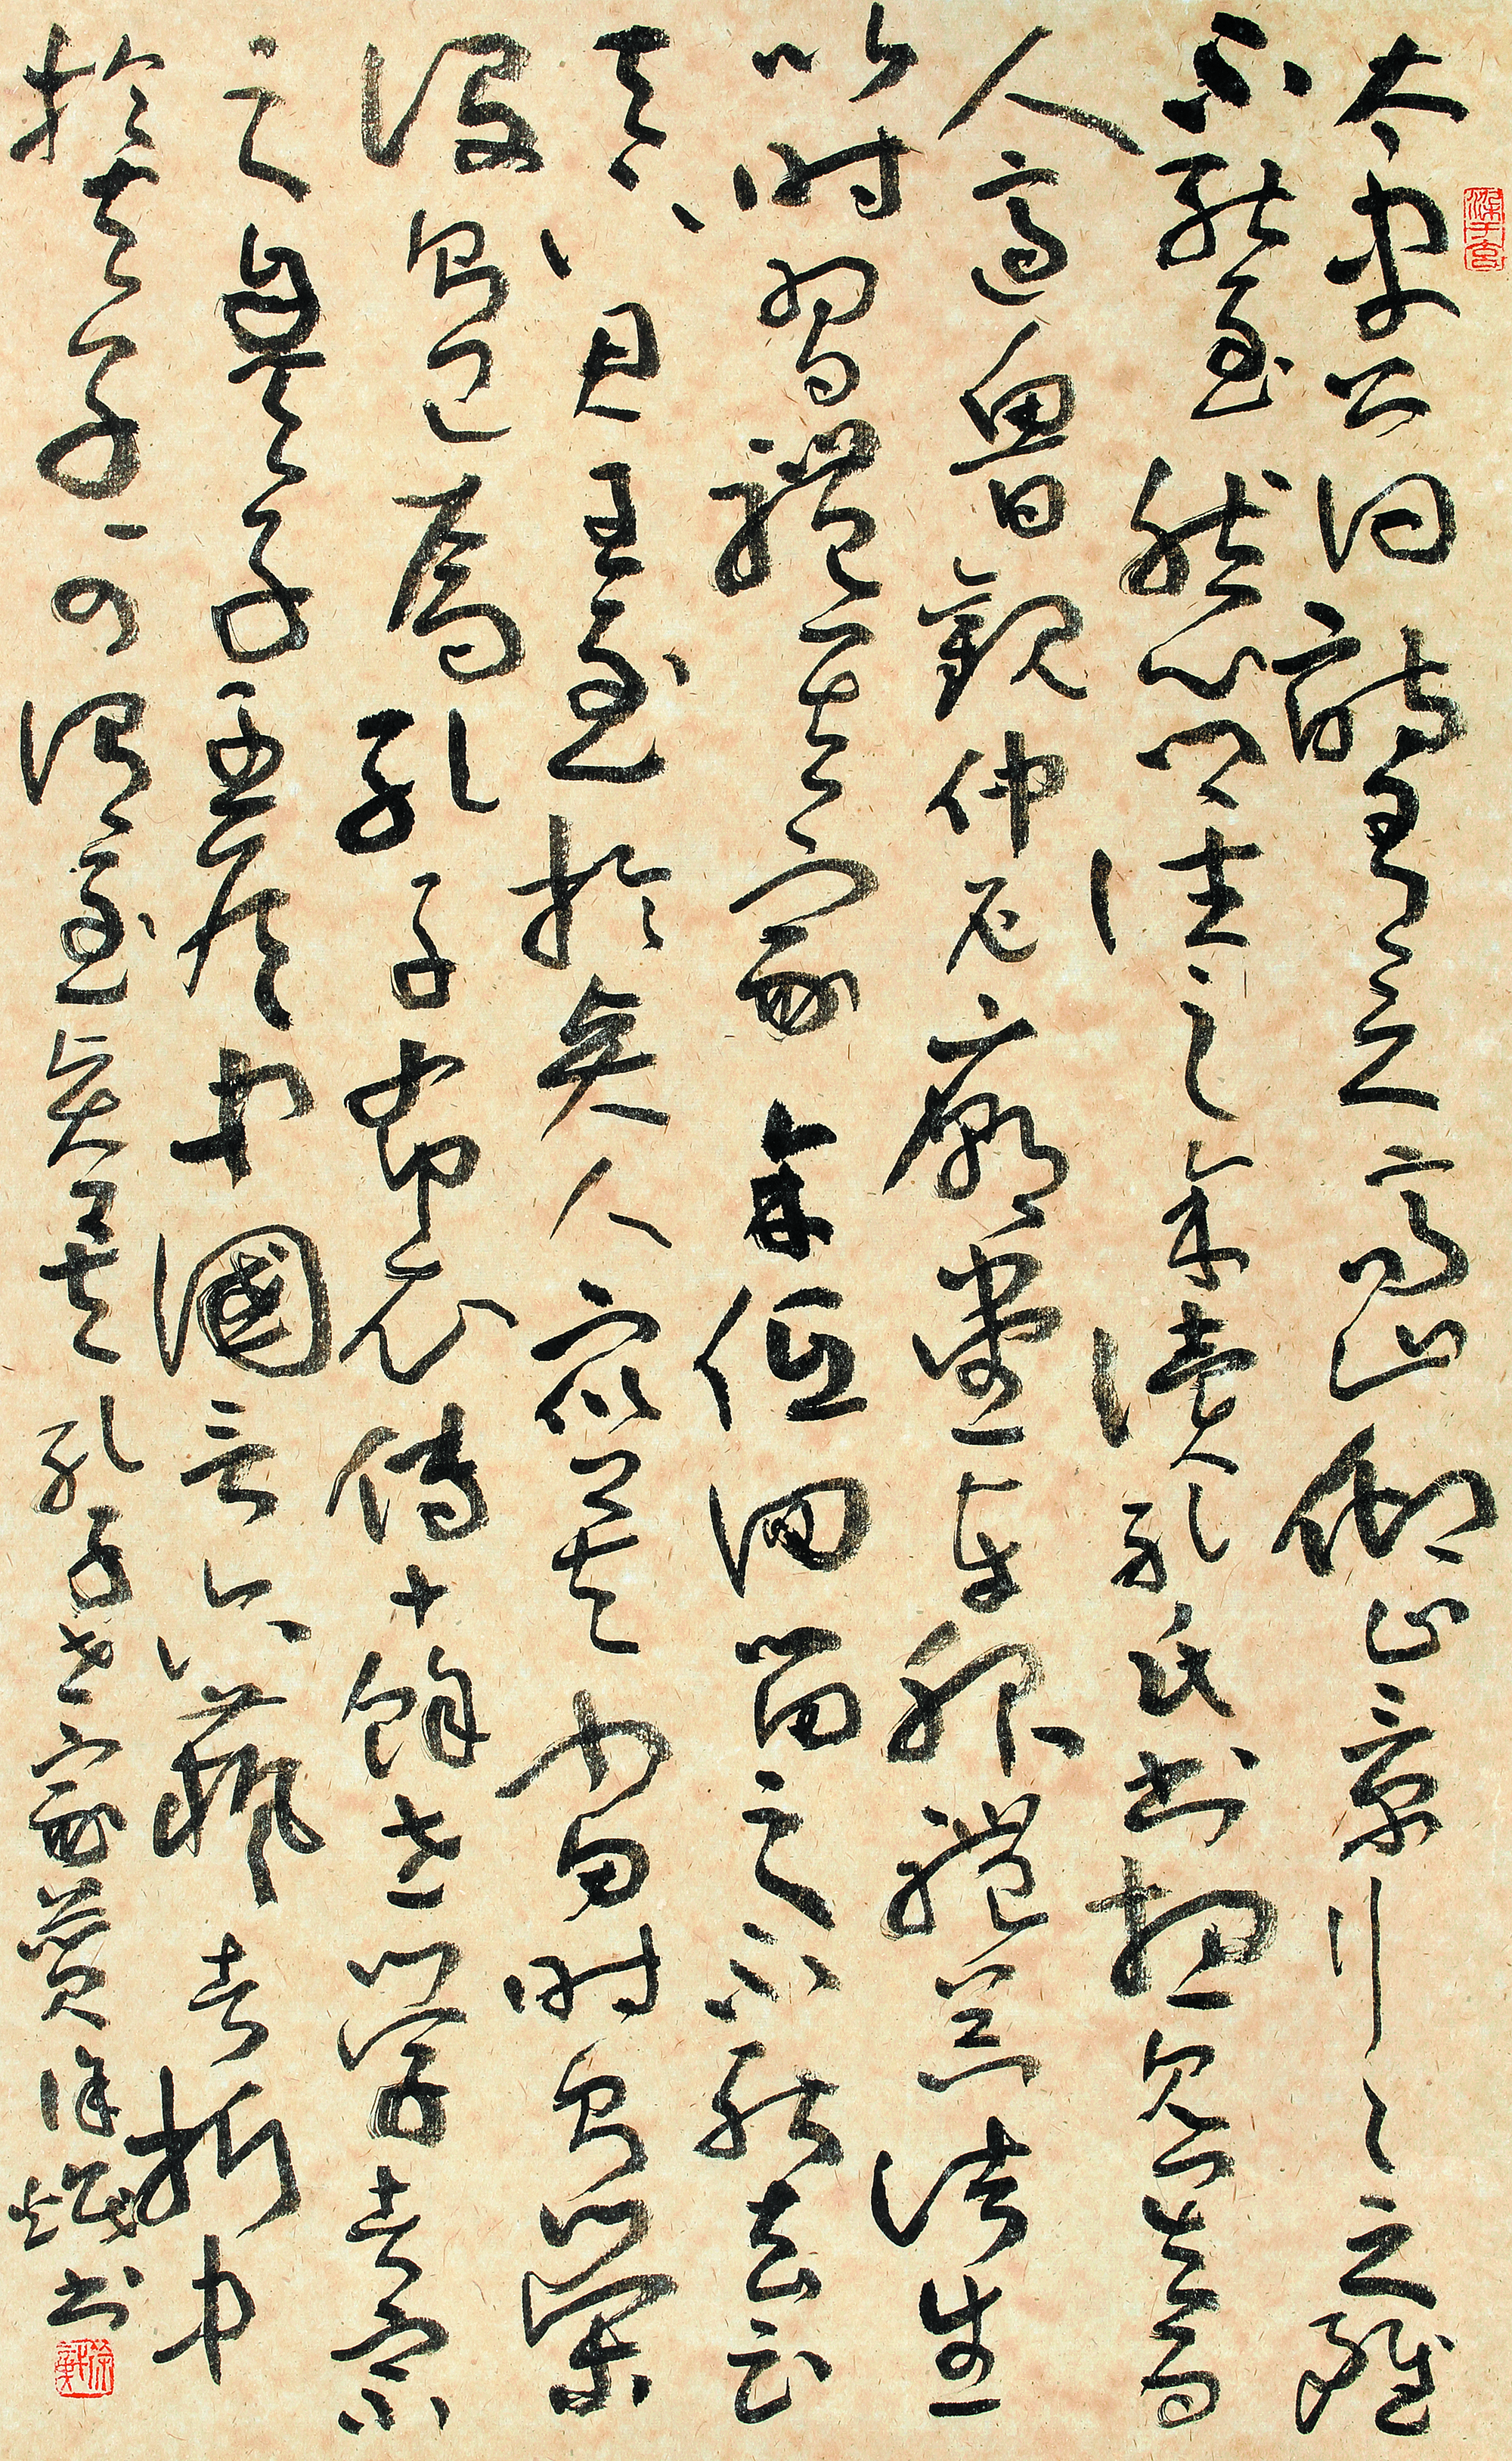 太史公曰詩有之高山仰止景行行止雖
不能至然心鄉往之余讀孔氏書想見其為
人適魯觀仲尼廟堂車服禮器諸生
以時習禮其家余低回留之不能去云
天下君王至於賢人眾矣當時則榮
沒則已焉孔子布衣傳十餘世學者宗
之自天子王侯中國言六藝者折中
於夫子可謂至聖矣孔子世家贊徐書